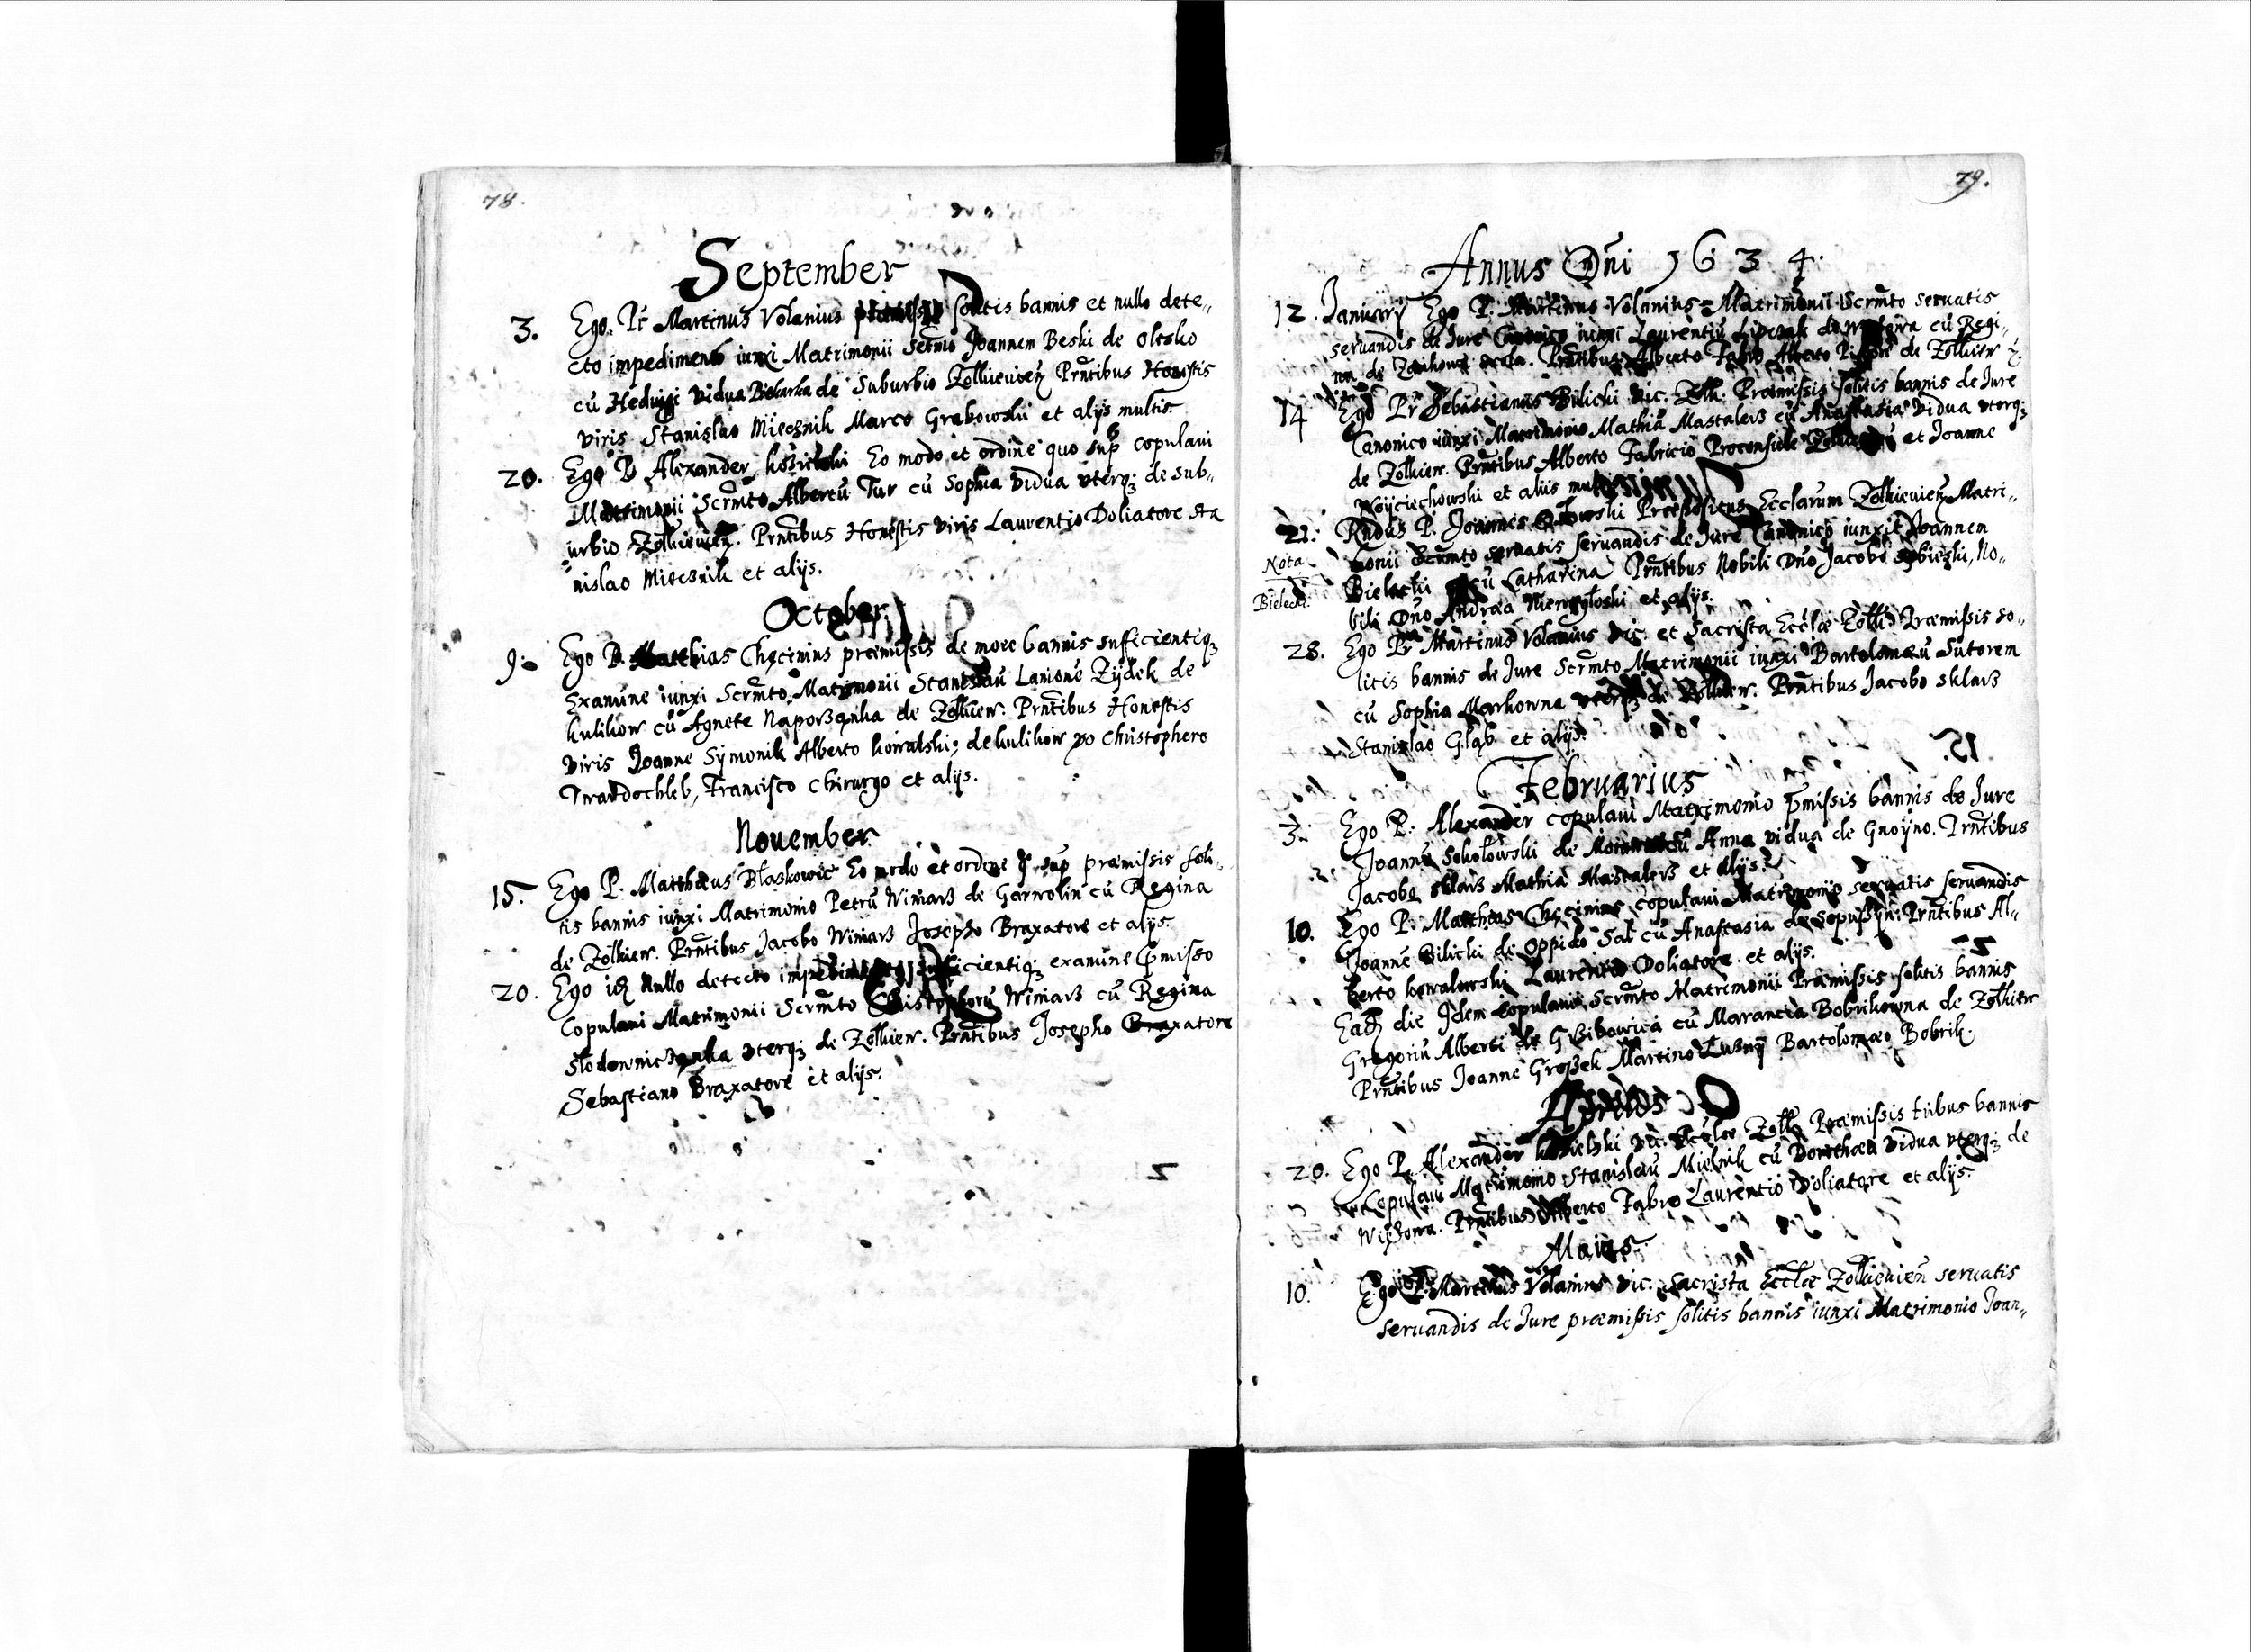 78.
September
3. Ego Pr Martinus Volanius solitis bannis et nullo dete„
cto impedimento iunxi Matrimonii Scrm̃to Joannem Beski de Olesko
cũ Hedwigi vidua de Suburbio Zolkieuieñ Prñtibus Honestis
viris Stanislao Miecznik Marco Grabowski et alijs multis.
20. Ego P. Alexander Eo modo et ordine quo sup̃ copulaui
Matrimonii Scrm̃to Albertũ Tur cũ Sophia vidua vterq; de sub„
urbio Zolkieuieñ. Prñtibus Honestis viris Laurentio Doliatore Sta
nislao Miecznik et alijs.
October
9. Ego P. Matthias Chęcinius præmissis de more bannis sufficientiq;
Examine iunxi Scrm̃to Matrimonii Stanislaũ Lanione Zÿdek de
Kulikow cũ Agnete de Zolkiew. Prñtibus Honestis
viris Joanne Sÿmonik Alberto Kowalski, de Kulikow vo Christophero
Twardochleb, Francisco Chirurgo et alijs.
November
15. Ego P. Matthæus Błaskowic Eo modo et ordine q̃ sup̃ præmissis soli„
tis bannis iunxi Matrimonio Petrũ Winiarß de Garwolin cũ Regina
de Zolkiew. Prñtibus Jacobo Winiarß Josepho Braxatore et alijs.
20. Ego Nullo detecto sufficientiq; examine p̃misso
Copulaui Matrimonii Scrm̃to Christophorũ Winiarß cũ Regina
vterq; de Zolkiew. Prñtibus Josepho Braxatore
Sebastiano Braxatore et alijs.
79.
Annus Dñi 1634.
12. Januarÿ Ego P. Martinus Volanius Matrimonii Scrm̃to seruatis
seruandis de Jure Canonico iunxi Laurentiũ cũ Regi„
na de Prñtibus Alberto Fabro Alberto de Zolkiew
14 Ego Pr Sebastianus Bilicki Vic. Zolk. Præmissis solitis bannis de Jure
Canonico iunxi Matrimonio Mathiã Mastalerß cũ Anastasia vidua vterq;
de Zolkiew. Prñtibus Alberto Fabricio Proconsule et Joanne
Woÿciechowski et aliis
21. Rñdus P. Joannes Præpositus Ecclarum Zolkieuieñ Matri„
monii Scrm̃to seruatis seruandis de Jure Canonico iunxit Joannem
Nota
Bielecki cũ Catharina Prñtibus Nobili Dño Jacobo Sobieski, No„
Bielecki
bili Dño Andræa et alijs.
28. Ego Pr Martinus Volanius Vic. et Sacrista Ecclæ Zolk. Præmissis so„
litis bannis de Jure Scrm̃to Matrimonii iunxi Bartolomæũ Sutorem
cũ Sophia Markowna vterq; de Zolkiew. Prñtibus Jacobo Sklarß
Stanislao Głąb et alijs.
Februarius
3. Ego P. Alexander copulaui Matrimonio p̃missis bannis de Jure
Joannẽ Sokołowski de cũ Anna vidua de Gnoÿno. Prñtibus
Jacobo Sklarß Mathia Mastalerß et alijs.
10. Ego P. Mathias Chęcinius copulaui Matrimonio seruatis seruandis
Joannẽ Bilicki de oppido cũ Anastasia de Prñtibus Al„
berto Kowalowski Laurentio Doliatore et alijs.
Eadẽ die Idem Copulaui Scrm̃to Matrimonii Præmissis solitis bannis
Gregoriũ Alberti de Grzibowica cũ Marancia Bobrikowna de Zolkiew
Prñtibus Joanne Großek Martino Bartolomæo Bobrik.
Aprilis
20. Ego P. Alexander Vic. Ecclæ Zolk. Præmissis tribus bannis
Copulaui Matrimonio Stanislaũ Mielnik cũ Dorothæa vidua vterq; de
Prñtibus Alberto Fabro Laurentio Doliatore et alijs.
Maius
10. Ego P. Martinus Volanius Vic. Sacrista Ecclæ Zolkieuieñ seruatis
seruandis de Jure præmissis solitis bannis iunxi Matrimonio Joan„